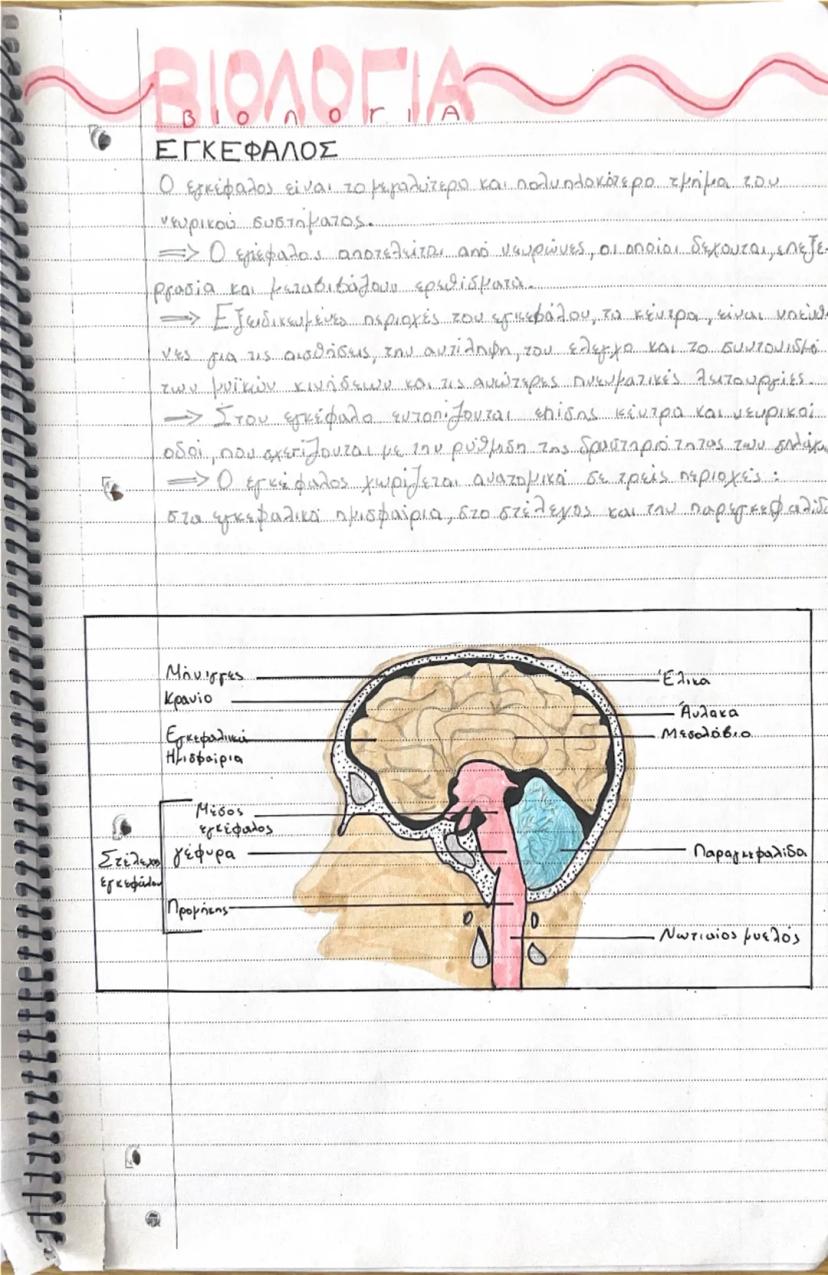 ΒΙΟΛΟΓΙΑ
ΒΙΟΛΟΓΙΑ
ΕΓΚΕΦΑΛΟΣ
Ο εγκέφαλος είναι το μεγαλύτερο και πολυπλοκότερο τμήμα του
νευρικού συστήματος.
⇒ Ο εγκέφαλος αποτελείται από νευρώνες, οι οποίοι δέχονται, επεξε-
ργασία και μεταβιβάζουν ερεθίσματα.
⇒ Εξειδικευμένες περιοχές του εγκεφάλου, τα κέντρα, είναι υπεύθ
νες για τις αισθήσεις, την αντίληψη, τον έλεγχο και το συντονισμό
των μυϊκών κινήσεων και τις ανώτερες πνευματικές λειτουργίες.
⇒ Στον εγκέφαλο εντοπίζονται επίσης κέντρα και νευρικοί
οδοί, που σχετίζονται με την ρύθμιση της δραστηριότητας των σπλάχν
⇒ Ο εγκέφαλος χωρίζεται ανατομικά σε τρείς περιοχές :
στα εγκεφαλικά ημισφαίρια, στο στέλεχος και την παρεγκεφαλίδα
Μήνιγγες
Κρανίο
Εγκεφαλικά
Ημισφαίρια
Μέσος
εγκέφαλος
Στέλεχος
εγκεφάλου
Γέφυρα
Προμήκης
Έλικα
Αύλακα
Μεσολόβιο
Παραγκεφαλίδα
Νωτιαίος μυελός